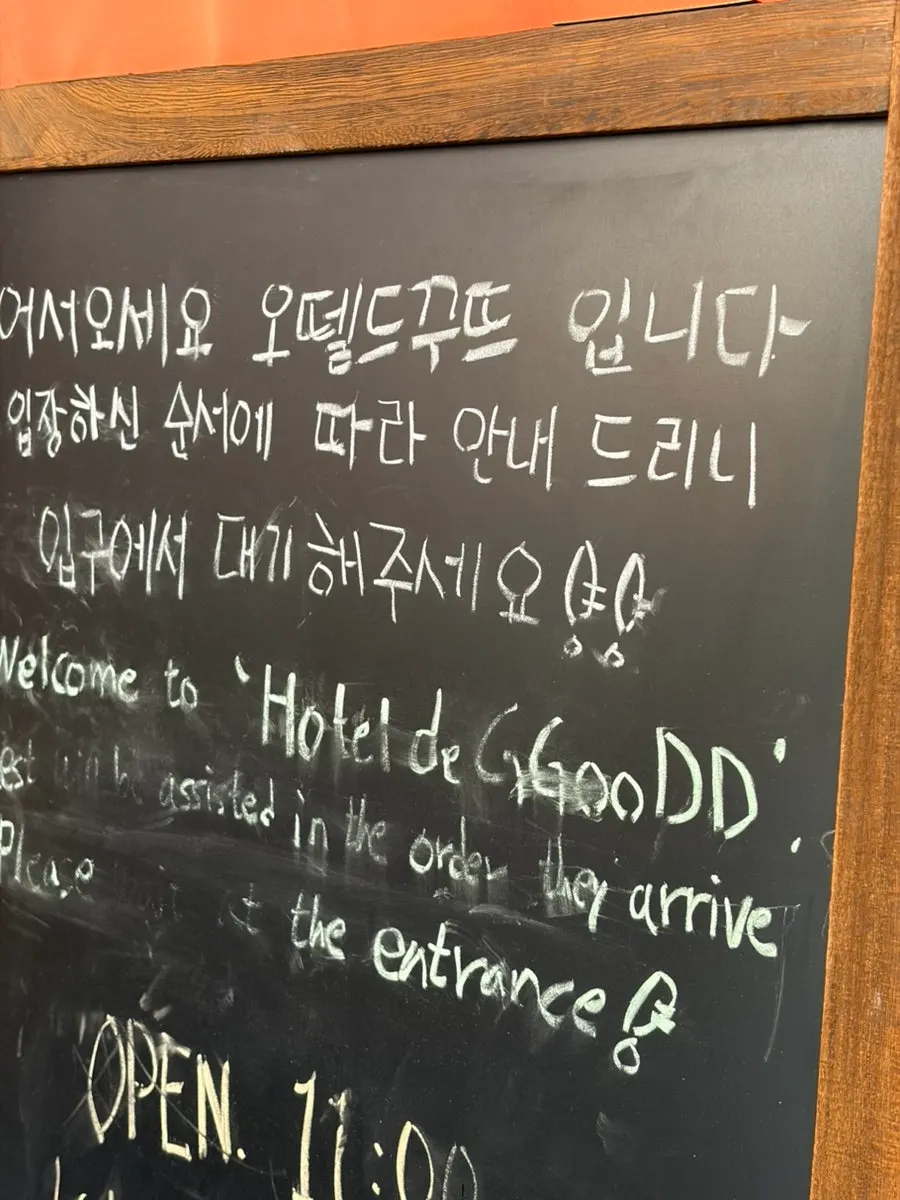 어서오세요 오뗄드꾸뜨 입니다
입장하신 순서에 따라 안내 드리니
입구에서 대기해주세요
Welcome to 'Hotel de GGooDD'.
assisted in the order they arrive
Please at the entrance
OPEN. 11:00